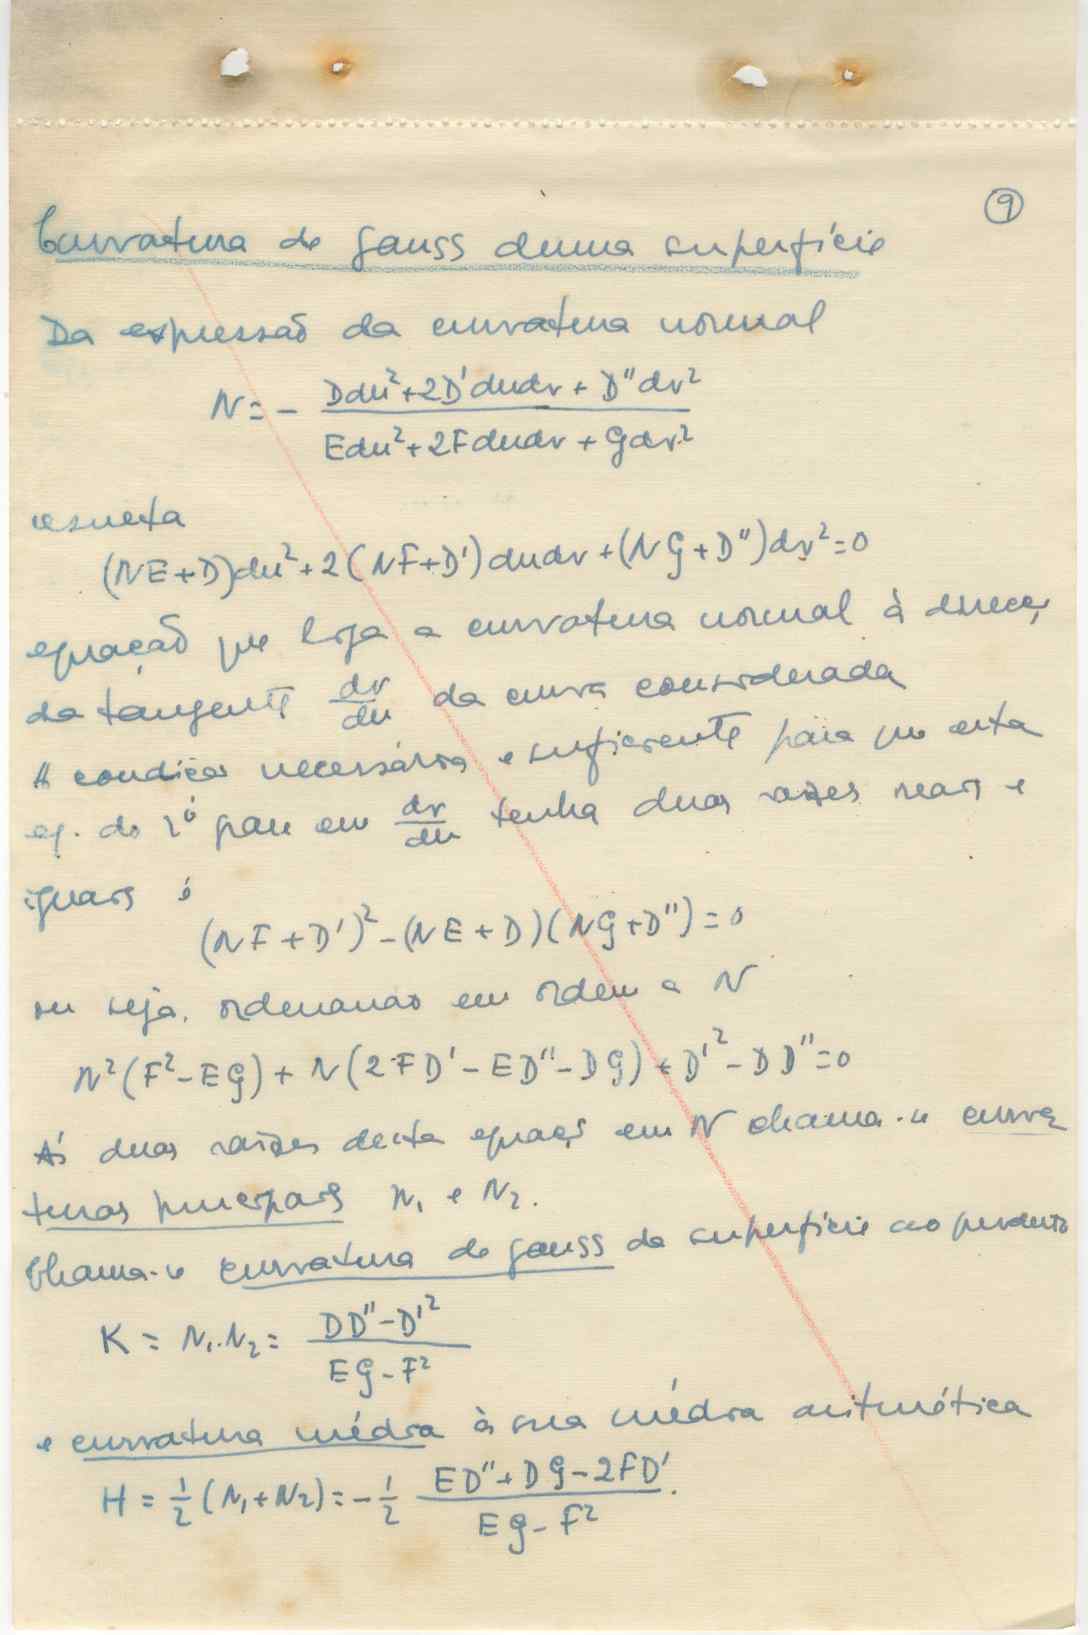 9
Curvatura de Gauss duma superfície
Da expressão da curvatura normal
N = - (Ddu²+2D'dudv+D''dv²)/(Edu²+2Fdudv+Gdv²)
resulta
(NE+D)du²+2(NF+D')dudv+(NG+D'')dv²=0
equação que liga a curvatura normal à direcç
da tangente dv/du da curva considerada
A condição necessária e suficiente para que esta
eq. do 2º grau em dv/du tenha duas raizes reais e
iguais é
(NF+D')²-(NE+D)(NG+D'')=0
ou seja, ordenando em ordem a N
N²(F²-EG)+N(2FD'-ED''-DG)+D'²-DD''=0
Às duas raízes desta equaçã em N chama-se curva
turas principais N₁ e N₂.
Chama-se curvatura de Gauss da superfície ao producto
K = N₁.N₂ = (DD''-D'²)/(EG-F²)
e curvatura média à sua média aritmética
H = 1/2 (N₁+N₂) = -1/2 (ED''+DG-2FD')/(EG-F²).